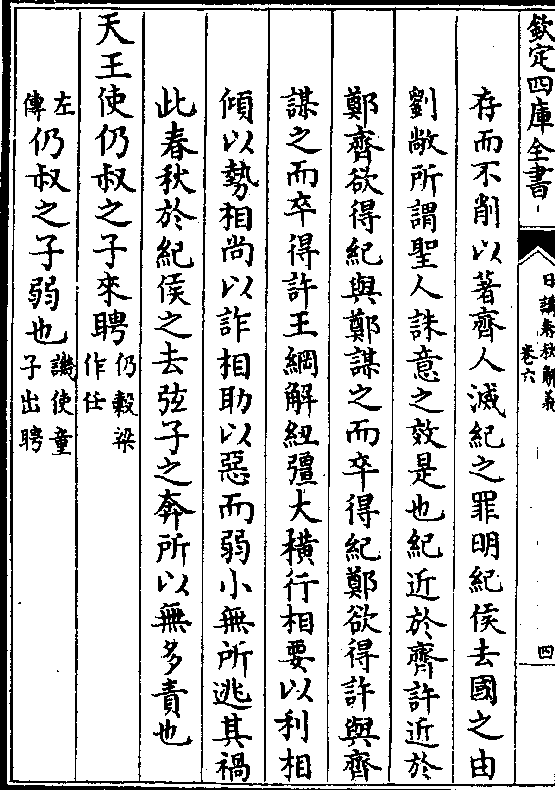 欽定四庫全書
日講春秋解義
卷六
四
存而不削以著齊人滅紀之罪明紀侯去國之由
劉敞所謂聖人誅意之效是也紀近於齊許近於
鄭齊欲得紀與鄭謀之而卒得紀鄭欲得許與齊
謀之而卒得許王綱解紐彊大橫行相要以利相
傾以勢相尚以詐相助以惡而弱小無所逃其禍
此春秋於紀侯之去弦子之奔所以無多責也
天王使仍叔之子來聘仍穀梁作任
左傳仍叔之子弱也譏使童子出聘